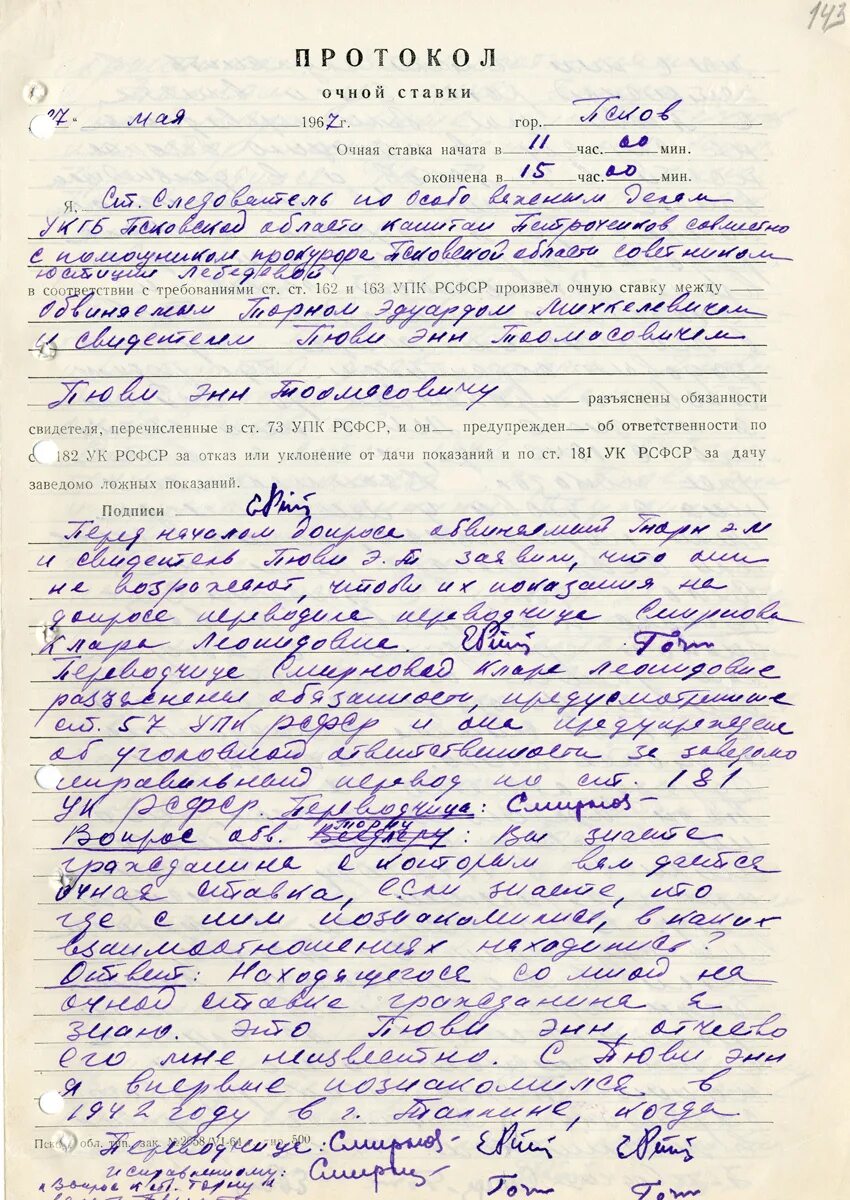 143
ПРОТОКОЛ
очной ставки
27" мая 1967 г. гор. Псков
Очная ставка начата в 11 час. 00 мин.
окончена в 15 час. 00 мин.
Я, Ст. Следователь по особо важным делам
УКГБ Псковской области капитан Петроченков совместно
с помощником прокурора Псковской области советником
юстиции Лебедевой
в соответствии с требованиями ст. ст. 162 и 163 УПК РСФСР произвел очную ставку между
обвиняемым Торном Эдуардом Михкелевичем
и свидетелем Пюви Энн Тоомасовичем
Пюви Энн Тоомасовичу разъяснены обязанности
свидетеля, перечисленные в ст. 73 УПК РСФСР, и он предупрежден об ответственности по
с 182 УК РСФСР за отказ или уклонение от дачи показаний и по ст. 181 УК РСФСР за дачу
заведомо ложных показаний.
Подписи
Перед началом допроса обвиняемый Торн Э.М
и свидетель Пюви Э.Т заявили, что они
не возражают, чтобы их показания на
допросе переводила переводчица Смирнова
Клара Леонидовна.
Переводчице Смирновой Кларе Леонидовне
разъяснены обязанности, предусмотренные
ст. 57 УПК РСФСР и она предупреждена
об уголовной ответственности за заведомо
неправильный перевод по ст. 181
УК РСФСР. Переводчица: Смирнов
Торну
Вопрос обв. : Вы знаете
гражданина с которым вам дается
очная ставка, если знаете, то
где с ним познакомились, в каких
взаимоотношениях находились?
Ответ: Находящегося со мной на
очной ставке гражданина я
знаю. Это Пюви Энн, отчество
его мне неизвестно. С Пюви Энн
я впервые познакомился в
1942 году в г. Таллине, когда
Пско обл. тип. зак. № 2658/VI-64 г. тир. 500
Переводчица: Смирнов
исправленному: Смирн
Вопрос к обв. Торну и